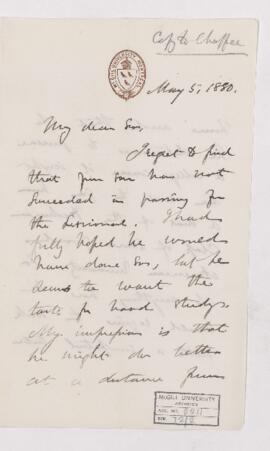 Copy to Chaffee
McGILL UNIVERSITY MONTREAL
May 5, 1890.
My dear Sir,
I regret to find
that your son has not
succeeded in passing for
the Sessional. I had
fully hoped he would
have done so, but he
seems to want the
taste for hard study.
My impression is that
he might do better
at a distance from
McGILL UNIVERSITY
ARCHIVES
ACC. NO.
REF.